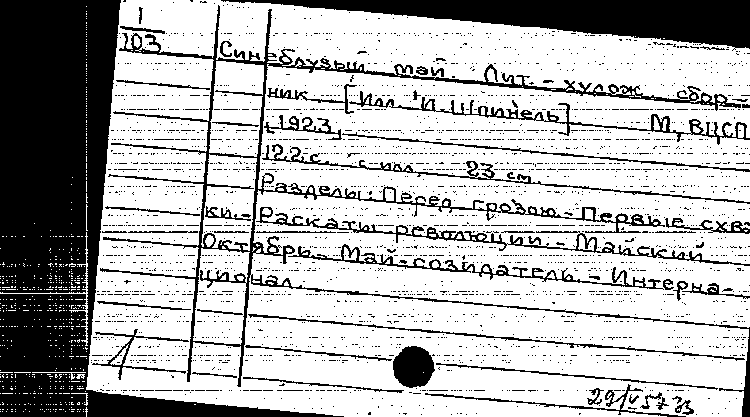 1
103
Синеблузый май. Лит.-худож. сбор-
ник. [Илл. И. Шпинель] М, ВЦСП
[1923]
122 с. с илл. 23 см.
Разделы: Перед грозою.- Первые схва
ки.- Раскаты революции.- Майский
Октябрь.- Май-созидатель.- Интерна-
ционал.
1
29/V 57